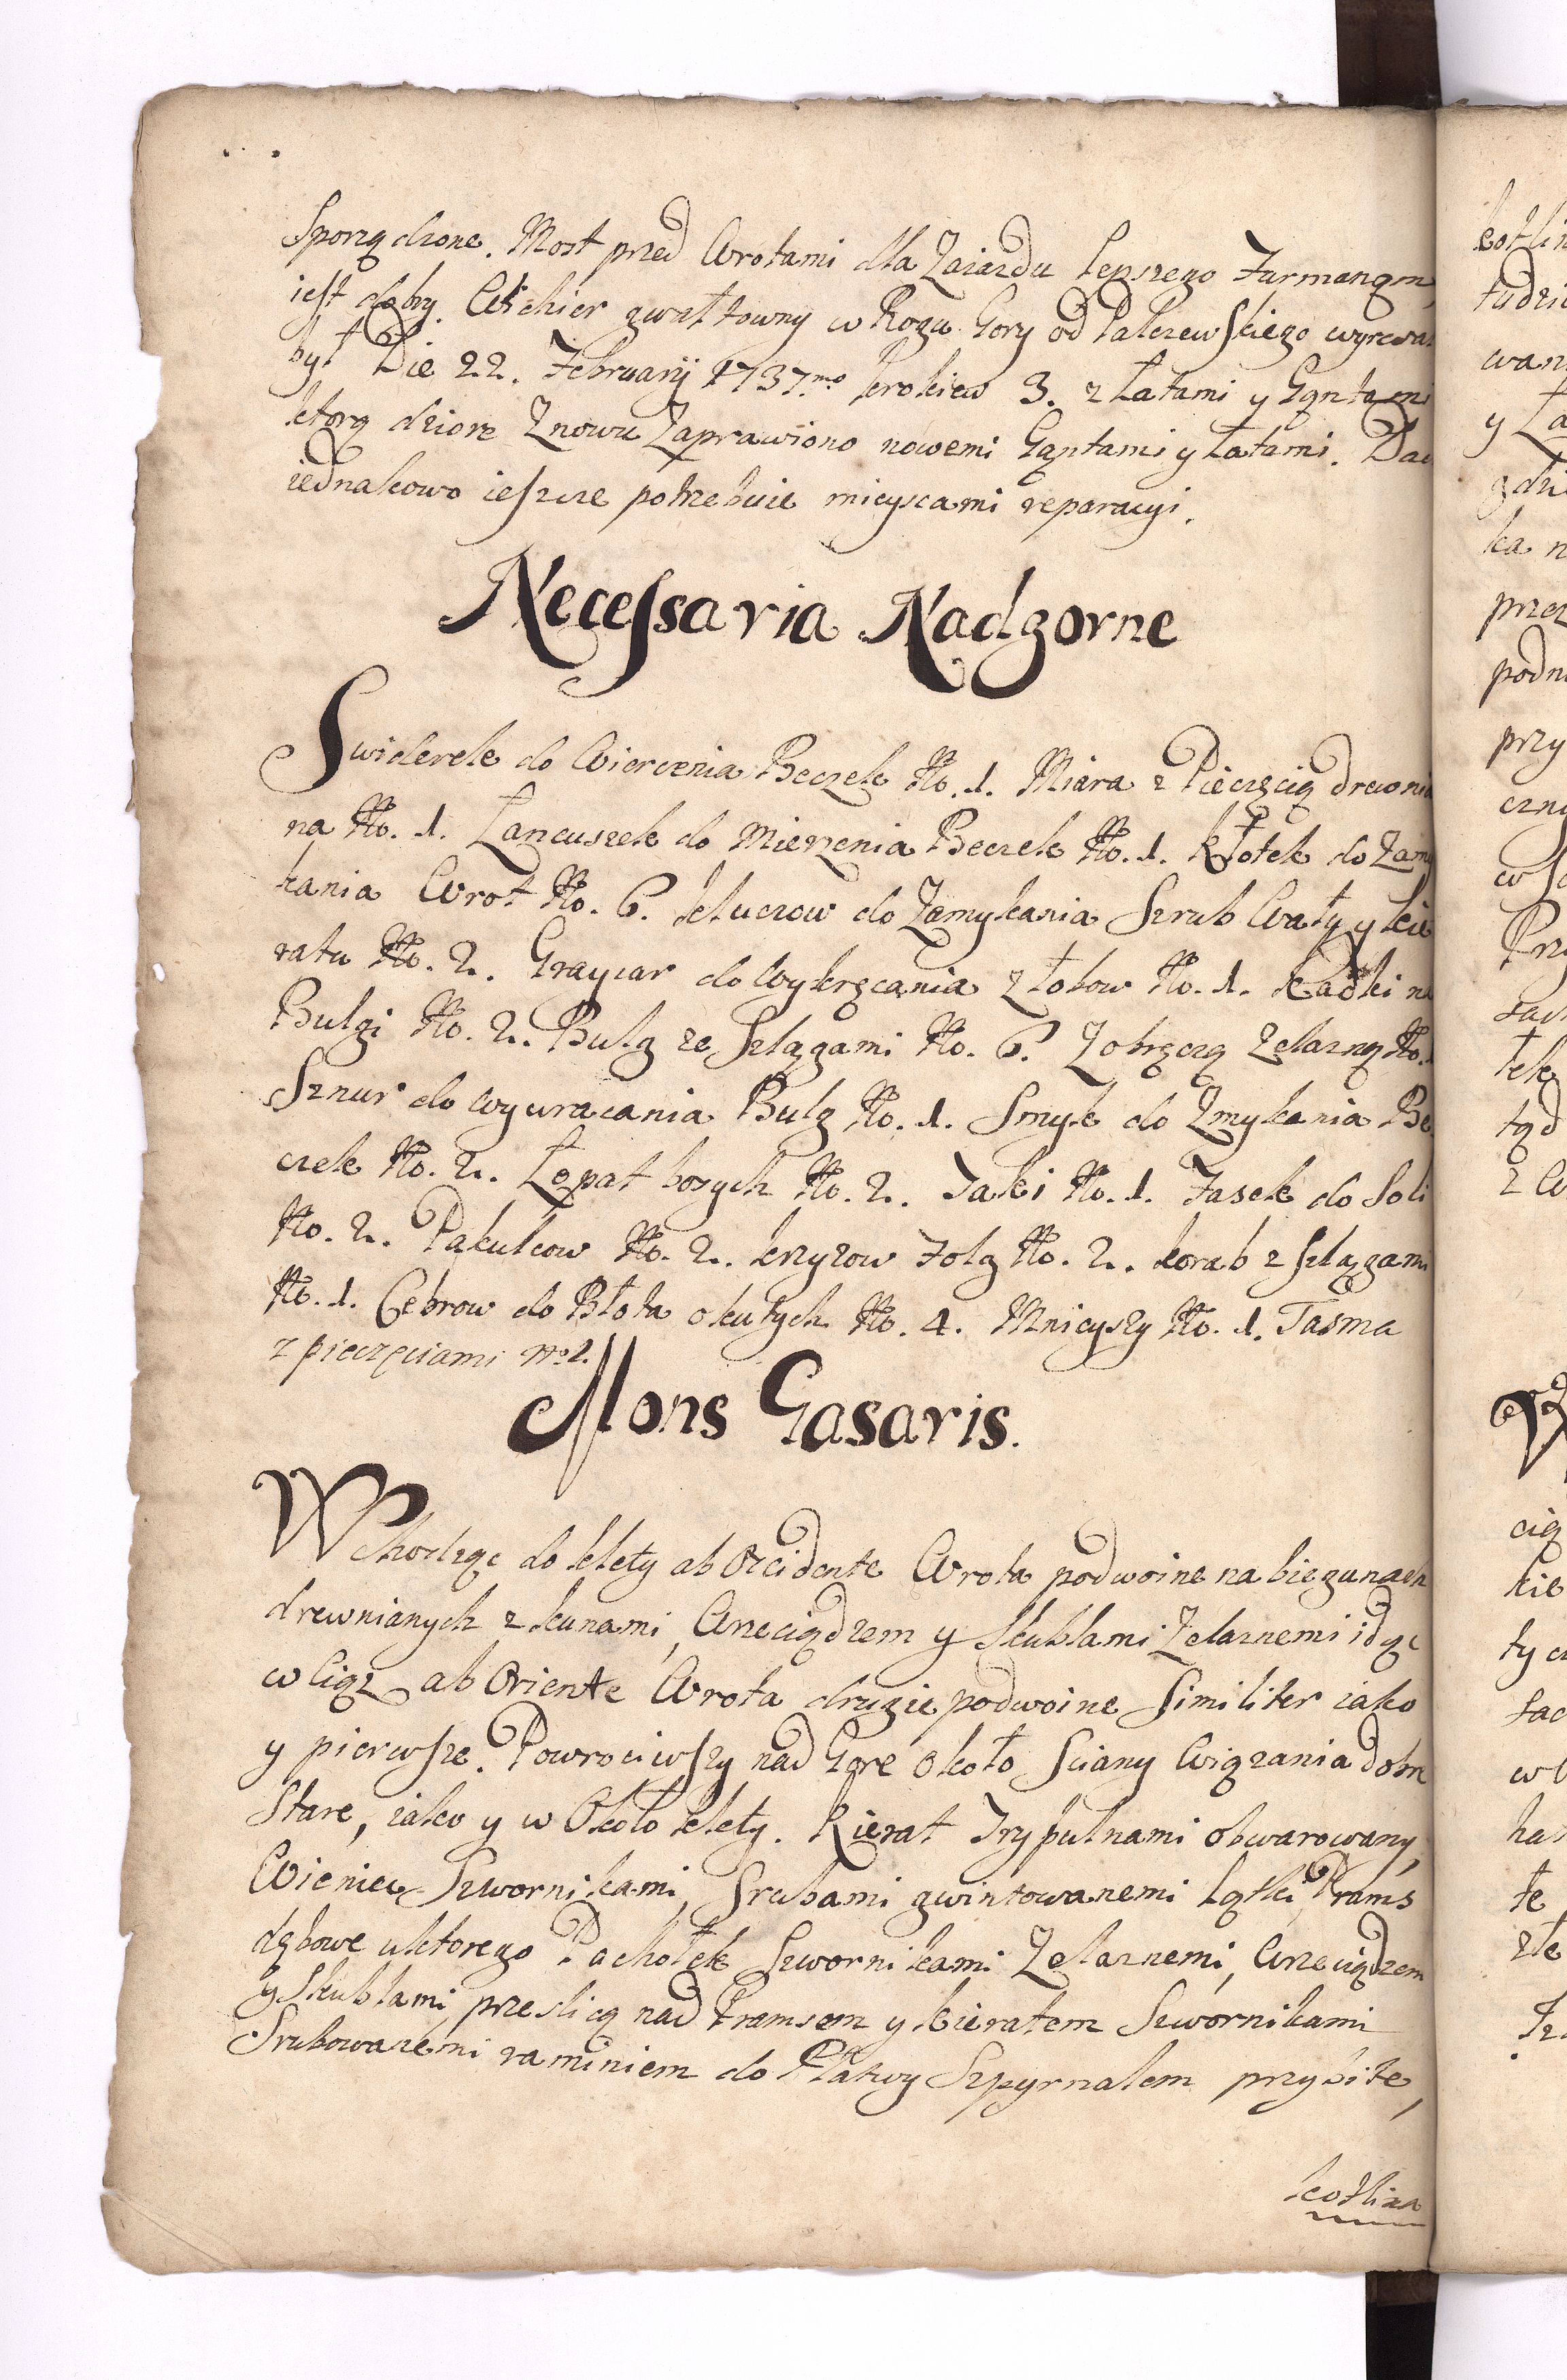 Sporządzone. Most przed Wrotami dla Zaiazdu lepszego Furmanom,
iest doby. Wicher gwałtowny w Rogu Gory od Palczewskiego wyrwał
był Die 22. February 1737.mo krokiew 3. z Łatami y Gątami
ktorą dziorę Znowu Zaprawiono nowemi Gątami y Łatami. Dac
iednakowo ieszcze potrzebuie mieyscami reparacyi.
Necessaria Nadgorne
Swiderek do Wiercenia Beczek No. 1. Miara z Pieczęcią drewnia
na No. 1. Łancuszek do Mierzenia Beczek No. 1. Kłotek do Zamy
kania Wrot No. 6. kluczow do Zamykania Szrub Wały y kie
ratu No. 2. Graycar do Wykręcania Złobow No. 1. Kadki na
Bulgi No. 2. Bulg ze Szlągami No. 6. Z obręczą Zelazną No.
Sznur do wywracania Bulg No. 1. Smyk do Zmykania Be
czek No. 2. Łopat bosych No. 2. Taki No. 1. Fasek do Soli
No. 2. Pąkulcow No. 2. krzyzow Folg No. 2. korab z szlągami
No. 1. Cebrow do Błota okutych No. 4. Mnieyszy No. 1. Tasma
z pieczęciami No 1.
Mons Casaris.
Wchodząc do klety ab Occidente Wrota podwoine na biegunach
drewnianych z kunami, Wrzeciądzem y skublami Zelaznemi idąc
w Ciąz ab Oriente Wrota drugie podwoine Similiter iako
y pierwsze. Powrociwszy nad Gore około Sciany Wiązania dobre
Stare, iako y w Około klety. Kierat Trypulnami obwarowany,
Wieniec Szwornikami, Srubami gwintowanemi Lątki, Prams
dębowe u ktorego Pachołek Szwornikami Zelaznemi, Wrzeciądzem
y Skublami przeslicą nad Pramsem y kieratem Szwornikami
Srubowanemi ramieniem do Płatwy Szpyrnalem przybite,
kotlina